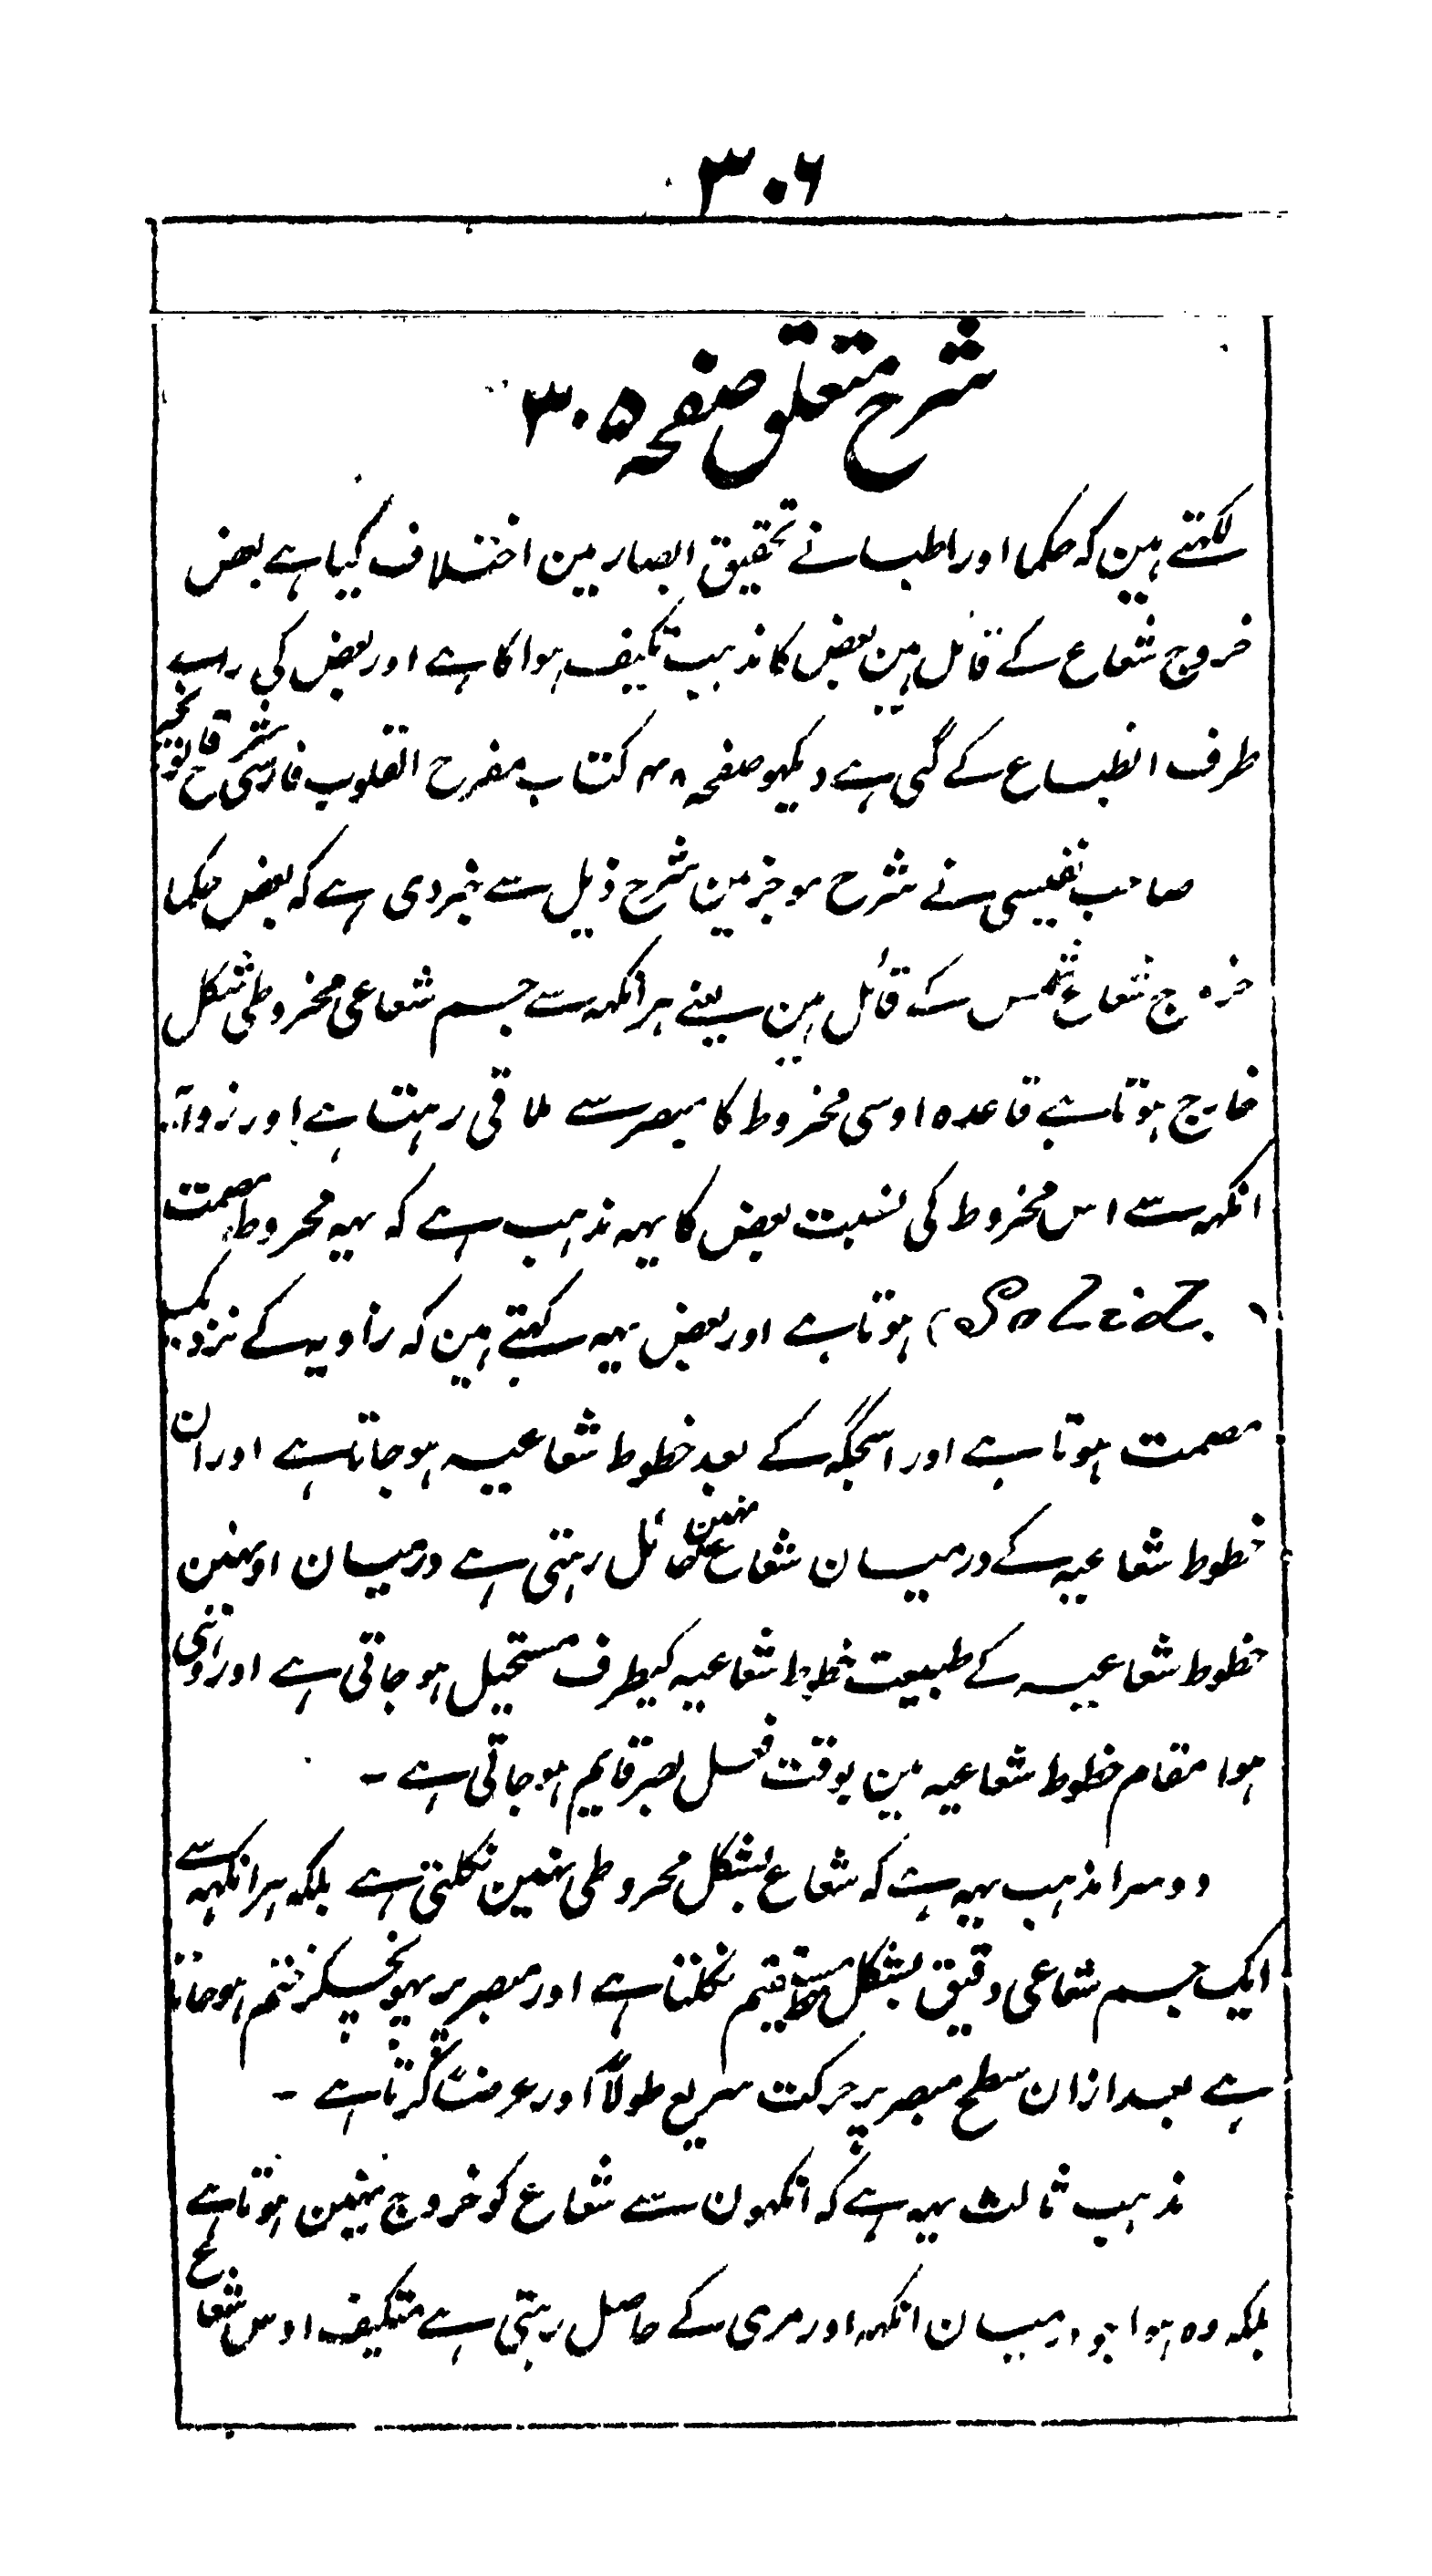 ۳۰۶
شرح متعلق صفحہ ۳۰۵
لکہتے ہین کہ حکما اور اطبا نے تحقیق ابصار مین اختلاف کیا ہے بعض
خروج شعاع کے قائل ہین بعض کا مذہب تکیف ہوا کا ہے اور بعض کی راے
طرف انطباع کے گئی ہے دیکہو صفحہ ۴۸ کتاب مفرح القلوب فارسی شرح قانونچہ
صاحب نفیسی نے شرح موجز مین شرح ذیل سے خبر دی ہے کہ بعض حکما
خروج شعاع شمس کے قائل ہین یعنے ہر انکہہ سے جسم شعاعی مخروطی شکل
خارج ہوتا ہے قاعدہ اوسی مخروط کا مبصر سے ملاقی رہتا ہے اور زوایہ
انکہہ سے اس مخروط کی نسبت بعض کا یہہ مذہب ہے کہ یہہ مخروط مصمت
(Solid) ہوتا ہے اور بعض یہہ کہتے ہین کہ زاویہ کے نزدیک
مصمت ہوتا ہے اور اسجگہ کے بعد خطوط شعاعیہ ہو جاتا ہے اور ان
خطوط شعاعیہ کے درمیان شعاع نہین حائل رہتی ہے درمیان اونہین
خطوط شعاعیہ کے طبیعت خطوط شعاعیہ کیطرف مستحیل ہو جاتی ہے اور
ہوا مقام خطوط شعاعیہ مین بوقت فعل بصر قایم ہو جاتی ہے -
دوسرا مذہب یہہ ہے کہ شعاع بشکل مخروطی نہین نکلتی ہے بلکہ ہر انکہہ سے
ایک جسم شعاعی دقیق بشکل خط مستقیم نکلتا ہے اور مبصر پر پہونچکر ختم ہو جاتا
ہے بعد ازان سطح مبصر پر حرکت سریع طولاً اور عرضاً کرتا ہے -
مذہب ثالث یہہ ہے کہ انکہون سے شعاع کو خروج نہین ہوتا ہے
بلکہ وہ ہوا جو درمیان انکہہ اور مرئی کے حاصل رہتی ہے متکیف اوس شعاع